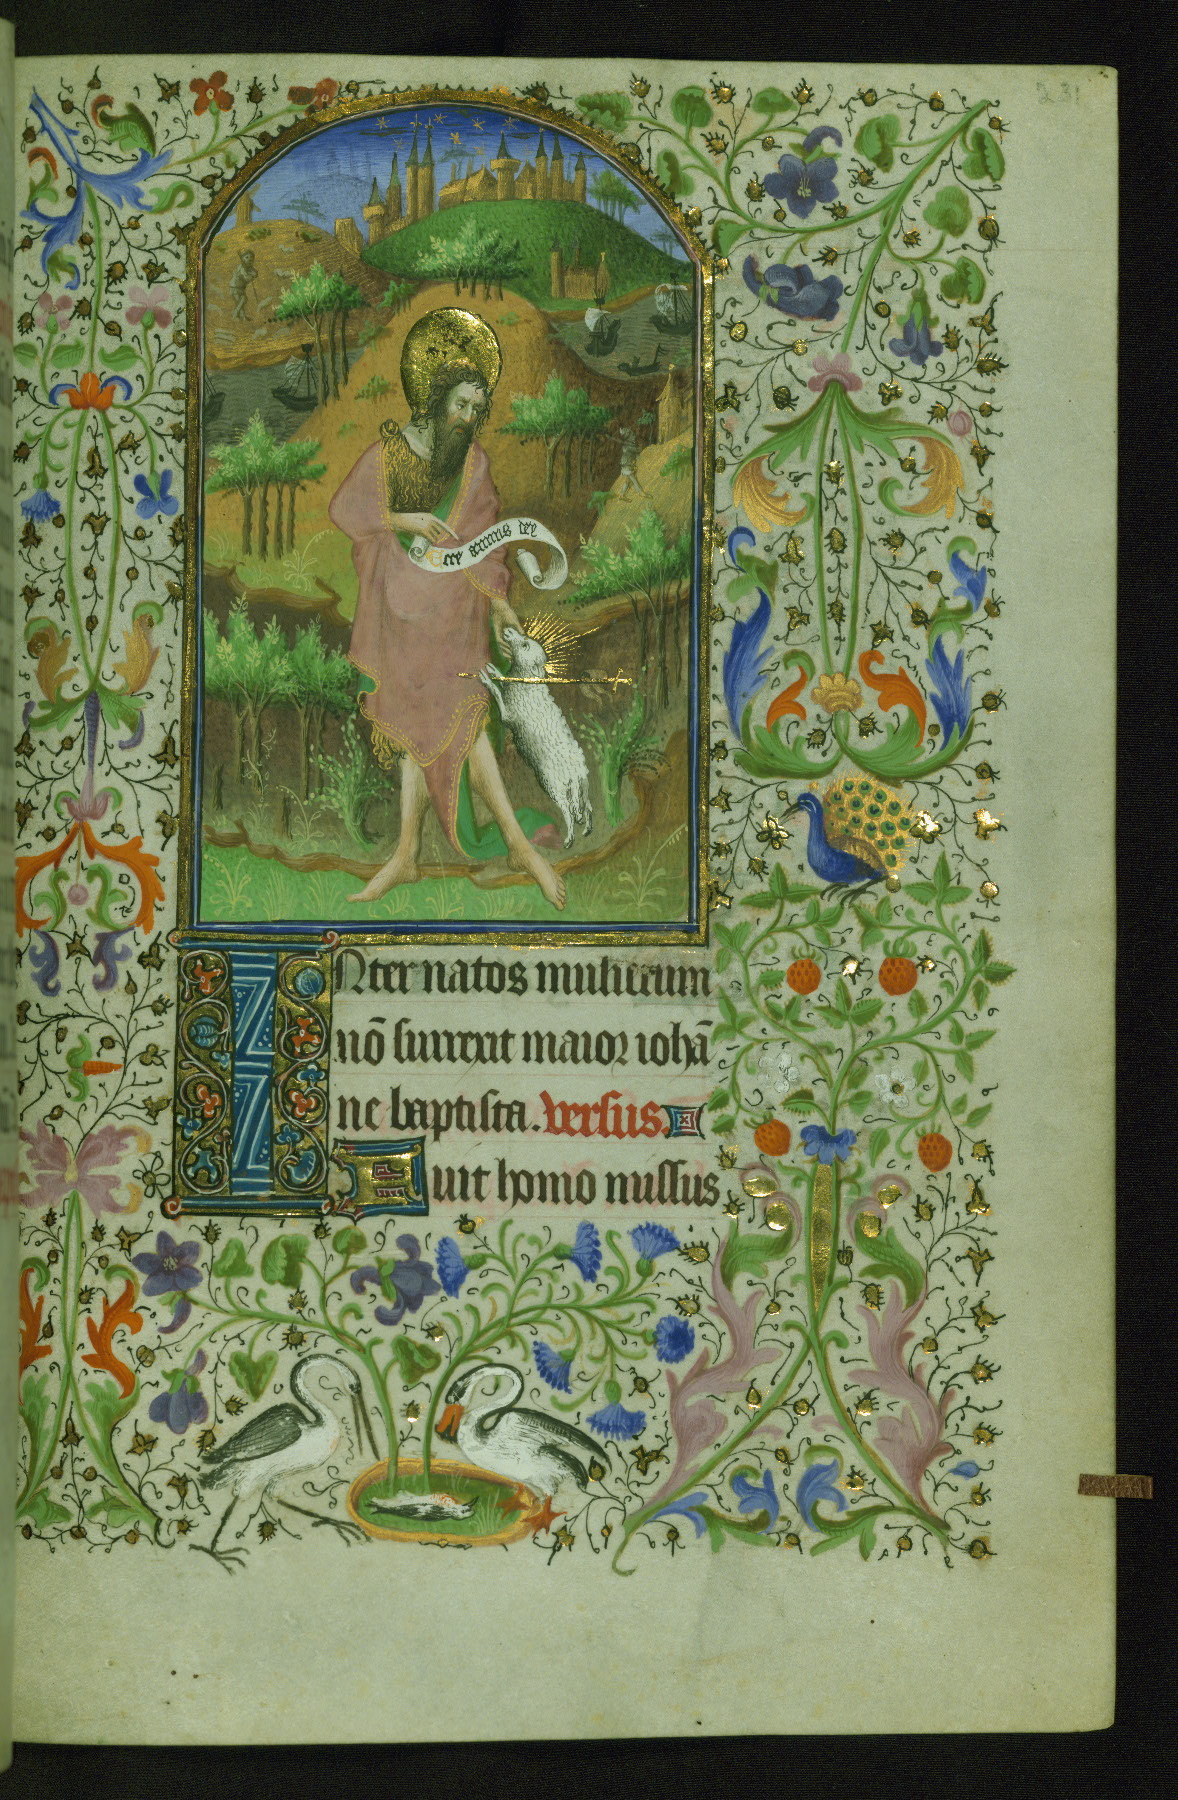 231
Ecce agnus dey
Inter natos mulierum
nō surrexit maior iohā
ne baptista. versus.
Fuit homo missus